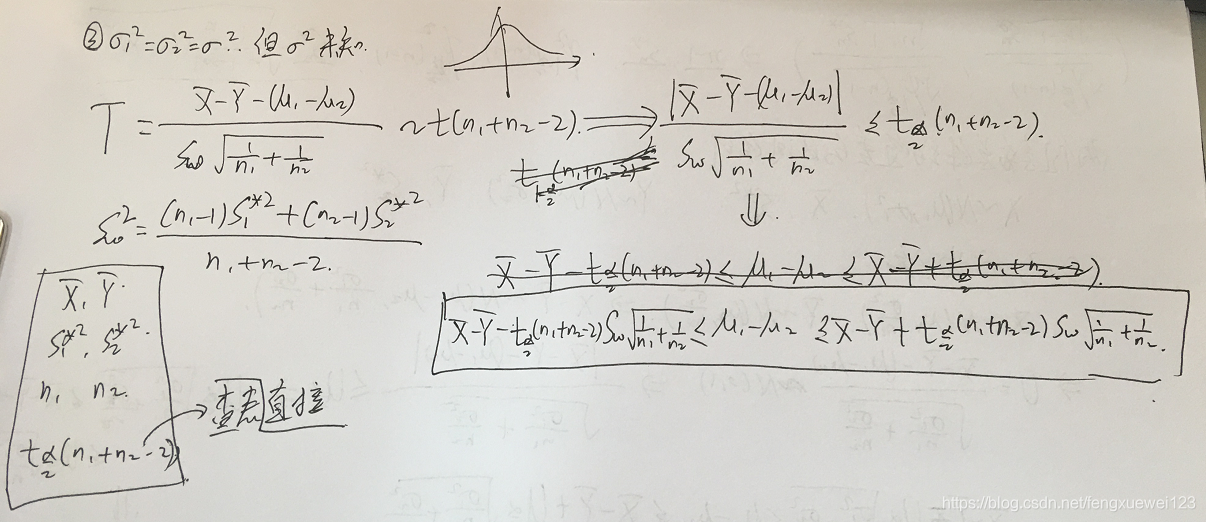 ② σ₁²=σ₂²=σ². 但σ²未知.
T = (X̄-Ȳ-(μ₁-μ₂)) / (Sω√(1/n₁+1/n₂)) ~ t(n₁+n₂-2). ⟹ |X̄-Ȳ-(μ₁-μ₂)| / (Sω√(1/n₁+1/n₂)) ≤ t_{α/2}(n₁+n₂-2).
t_{1-α/2}(n₁+n₂-2)
Sω² = ((n₁-1)S₁*²+(n₂-1)S₂*²) / (n₁+n₂-2).
⇓.
X̄-Ȳ-t_{α/2}(n₁+n₂-2)≤μ₁-μ₂≤X̄-Ȳ+t_{α/2}(n₁+n₂-2).
X̄-Ȳ-t_{α/2}(n₁+n₂-2)Sω√(1/n₁+1/n₂)≤μ₁-μ₂≤X̄-Ȳ+t_{α/2}(n₁+n₂-2)Sω√(1/n₁+1/n₂).
X̄, Ȳ.
S₁*², S₂*².
n₁ n₂.
t_{α/2}(n₁+n₂-2)
查表直接
https://blog.csdn.net/fengxuewei123